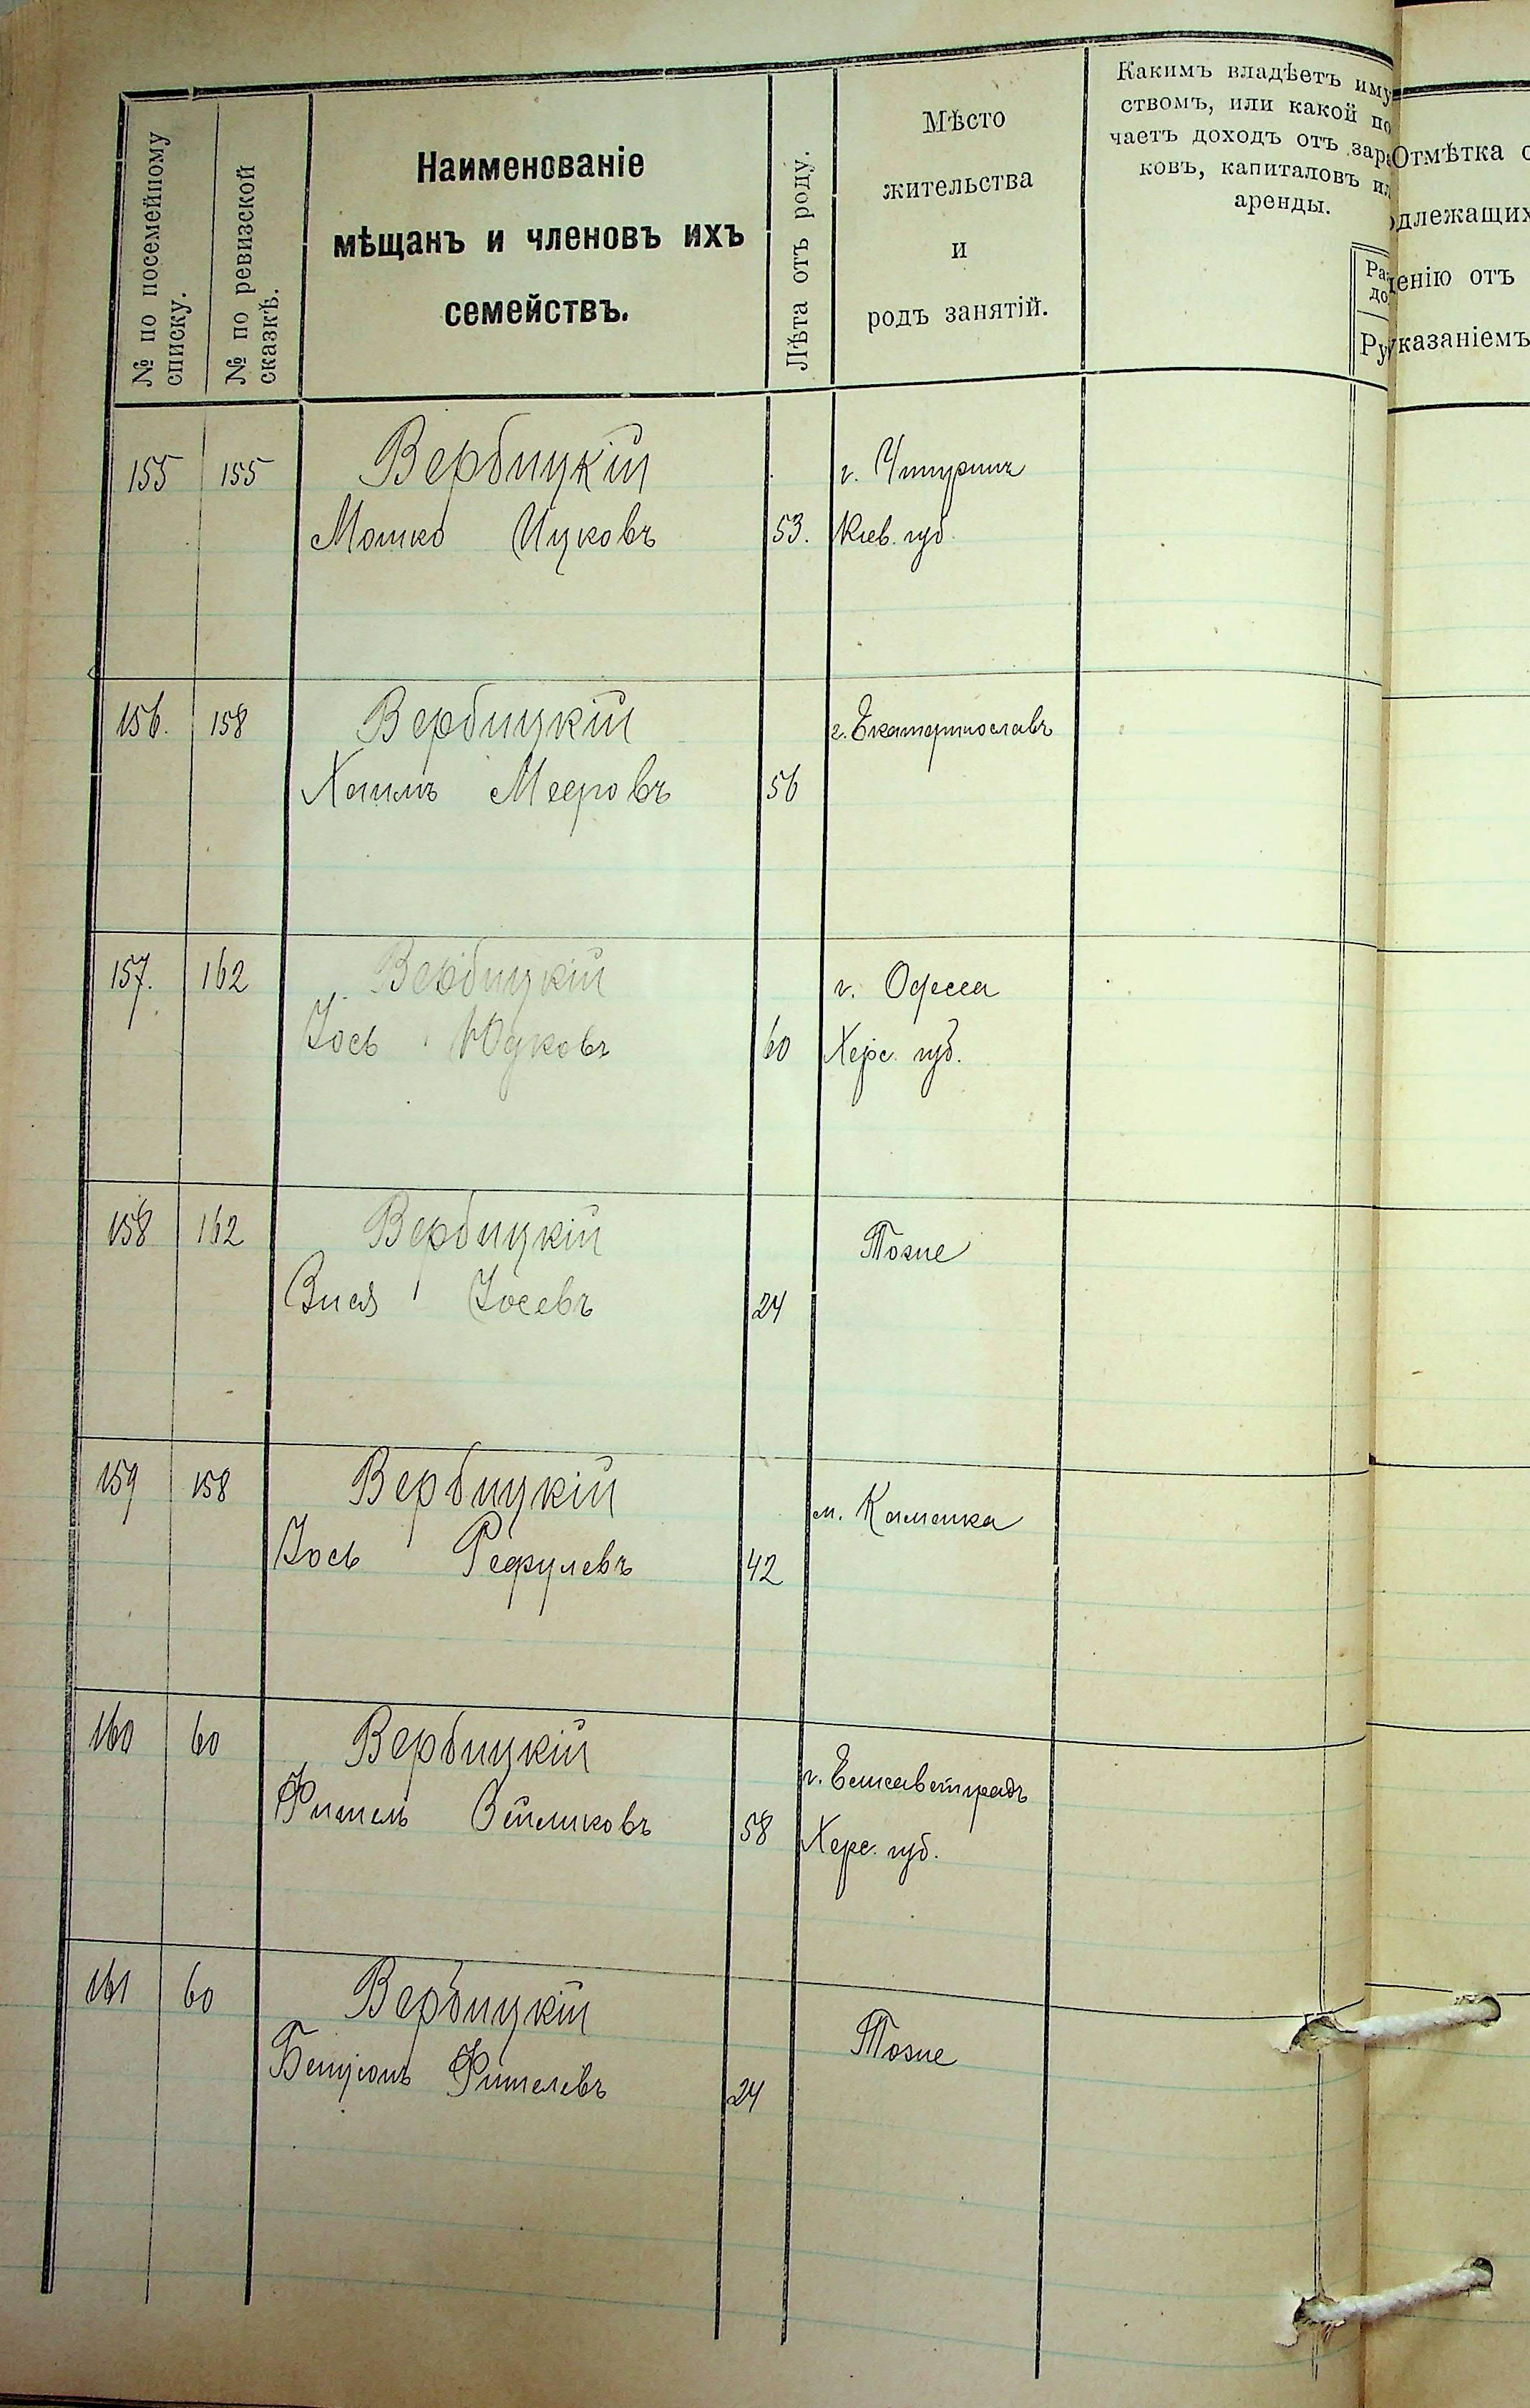 № по посемейному
списку.
№ по ревизской
сказкѣ.
Наименованіе
мѣщанъ и членовъ ихъ
семействъ.
Лѣта отъ роду.
Мѣсто
жительства
и
родъ занятій.
Какимъ владѣетъ иму
ствомъ, или какой по
чаетъ доходъ отъ зара
ковъ, капиталовъ ил
аренды.
Ра
до
Ру
Отмѣтка о
длежащих
ленію отъ
указаніемъ
155 155 Вербицкій г. Чигиринъ
Мошко Ицковъ 53. Кіев. губ.
156. 158 Вербицкій г. Екатеринославъ
Хаимъ Мееровъ 56
157. 162 Вербицкій г. Одесса
Іось Юдковъ 60 Херс. губ.
158 162 Вербицкій Тоже
Зися Іосевъ 24
159 158 Вербицкій м. Каменка
Іось Рефулевъ 42
160 60 Вербицкій г. Елисаветградъ
Фишель 58 Херс. губ.
161 60 Вербицкій Тоже
Фишелевъ 24